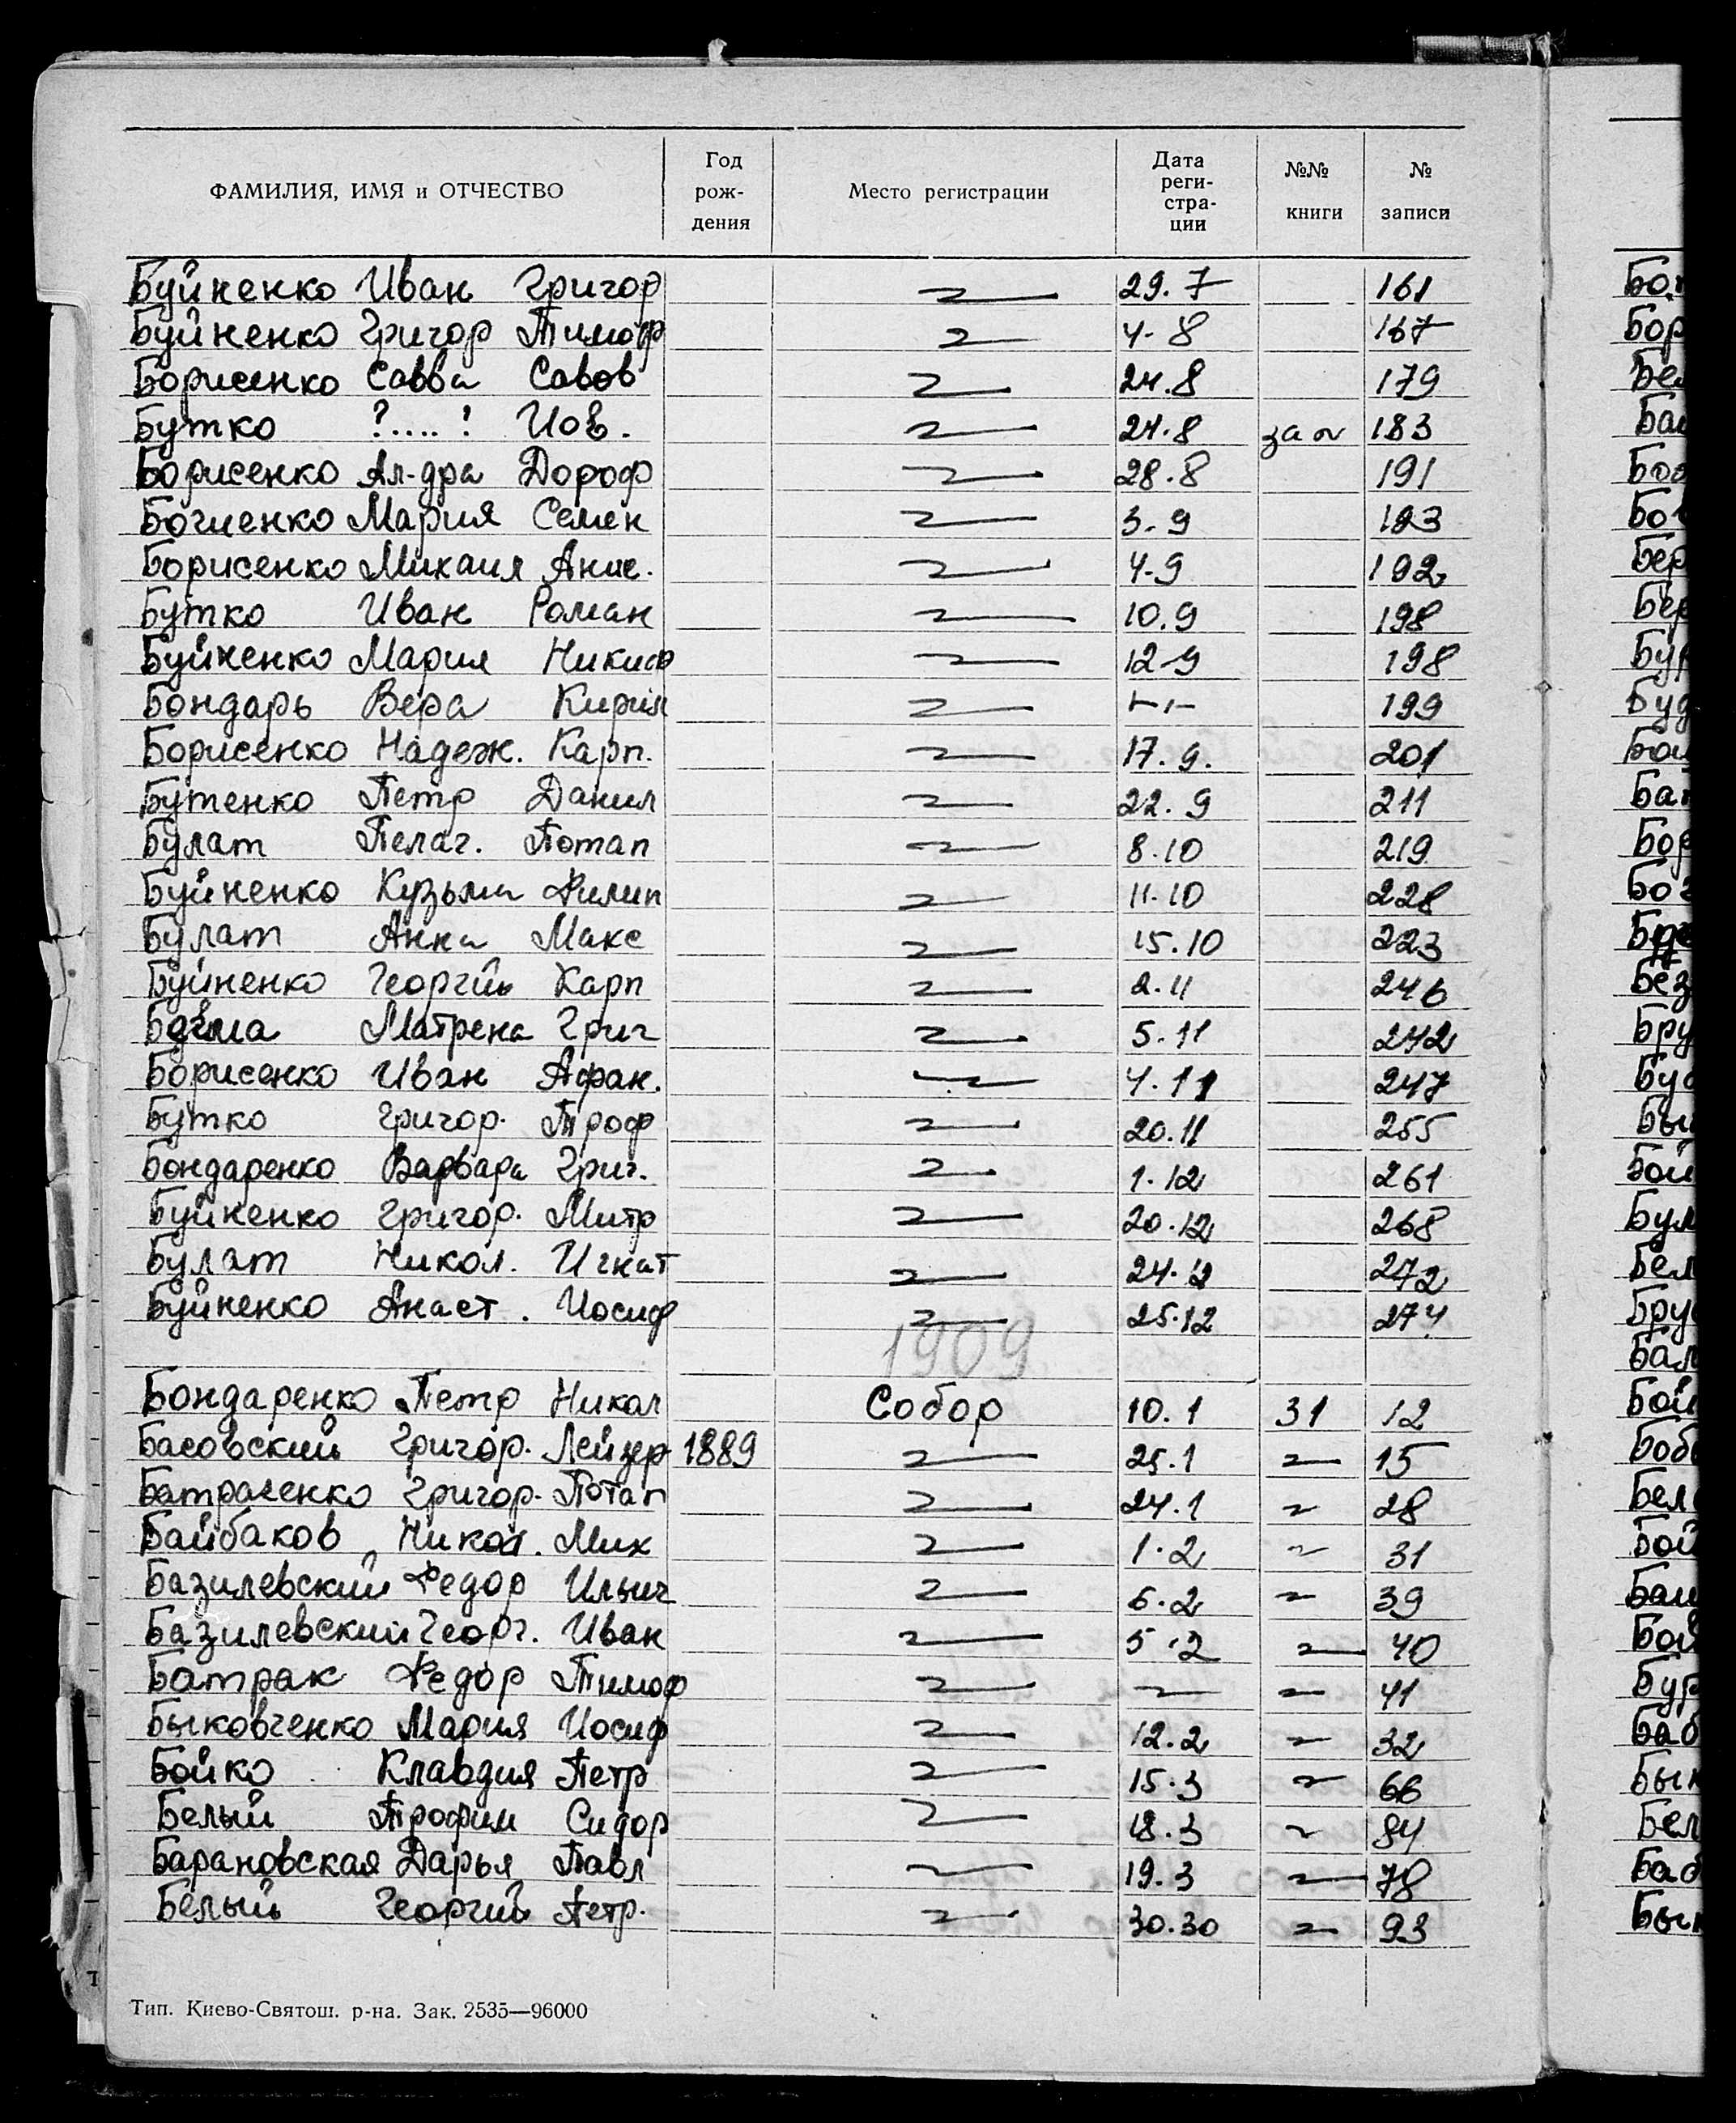 ФАМИЛИЯ, ИМЯ и ОТЧЕСТВО Год рождения Место регистрации Дата регистрации №№ книги № записи
Буйненко Иван Григор 29.7 161
Буйненко Григор Тимоф 4-8 167
Борисенко Савва Савов 24.8 179
Бутко ?....! Иов. 24.8 183
Борисенко Ал-дра Дороф 28.8 191
Мария Семен 3-9 193
Борисенко Михаил Анис. 4-9 192
Бутко Иван Роман 10.9 198
Буйненко Мария Никиф 12-9 198
Бондарь Вера Кирил 199
Борисенко Надеж. Карп. 17.9. 201
Бутенко Петр Данил 22.9 211
Булат Пелаг. Потап 8.10 219
Буйненко Кузьма Филип 11.10 228
Булат Анна Макс 15.10 223
Буйненко Георгий Карп 2.11 246
Матрена Григ 5.11 242
Борисенко Иван Афан. 4.11 247
Бутко Григор. Троф 20.11 255
Бондаренко Варвара Григ. 1.12 261
Буйненко Григор. Митр 20.12 268
Булат Никол. Игнат 24.12 272
Буйненко Анаст. Иосиф 25.12 274
1909
Бондаренко Петр Никол Собор 10.1 31 12
Басовский Григор. Лейзер 1889 25.1 15
Григор. Потап 24.1 28
Байбаков Никол. Мих 1.2 31
Базилевский Федор Ильич 6.2 39
Базилевский Георг. Иван 5.2 40
Батрак Федор Тимоф 41
Быковченко Мария Иосиф 12.2 32
Бойко Клавдия Петр 15.3 66
Белый Трофим Сидор 18.3 84
Барановская Дарья Павл 19.3 78
Белый Георгий Петр. 30.30 93
Тип. Киево-Святош. р-на. Зак. 2535—96000